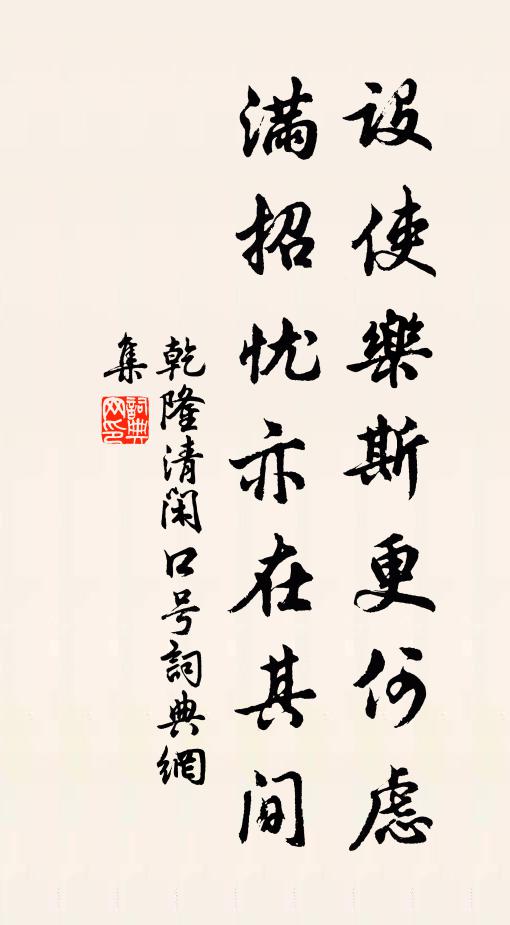 设使樂斯更何慮
滿招忧亦在其间
乾隆清闲口号詞典網
集
詞典网印